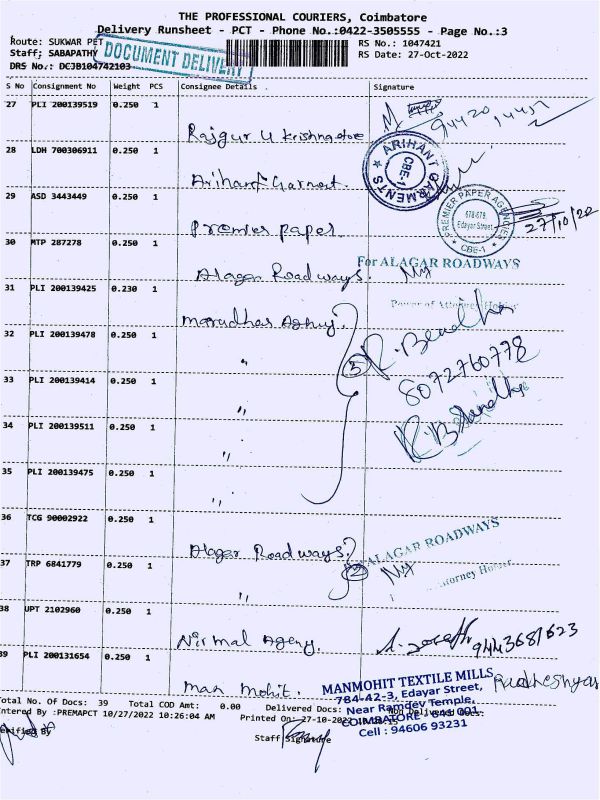 THE PROFESSIONAL COURIERS, Coimbatore
Delivery Runsheet - PCT - Phone No.:0422-3505555 - Page No.:3
Route: SUKWAR PET RS No.: 1047421
Staff; SABAPATHY RS Date: 27-Oct-2022
DRS No.: DCJB104742103
DOCUMENT DELIVERY
S No Consignment No Weight PCS Consignee Details Signature
27 PLI 200139519 0.250 1
94420 14457
28 LDH 700306911 0.250 1 Arihant Garment.
ARIHANT GARMENTS
CBE-1
29 ASD 3443449 0.250 1 Premier paper
PREMIER PAPER AGENCIES
678-679, Edayar Street
CBE-1
27/10/22
30 MTP 287278 0.250 1 Alagar Roadways.
For ALAGAR ROADWAYS
Power of Attorney Holder
31 PLI 200139425 0.230 1 Marudhar Agency
32 PLI 200139478 0.250 1 "
5
R. Bendhar
8072760778
33 PLI 200139414 0.250 1 "
34 PLI 200139511 0.250 1 "
35 PLI 200139475 0.250 1 "
36 TCG 90002922 0.250 1 Alagar Roadways
2
ALAGAR ROADWAYS
Attorney Holder
37 TRP 6841779 0.250 1 "
38 UPT 2102960 0.250 1 Nirmal Agency.
9443681623
39 PLI 0131654 0.250 1 Man Mohit.
MANMOHIT TEXTILE MILLS
784-42-3, Edayar Street,
Near Ramdev Temple,
COIMBATORE - 641 001.
Cell : 94606 93231
Radheshyam
Total No. Of Docs: 39 Total COD Amt: 0.00 Delivered Docs: Non Delivered Docs:
Entered By :PREMAPCT 10/27/2022 10:26:04 AM Printed On: 27-10-2022
Verified By Staff Signature